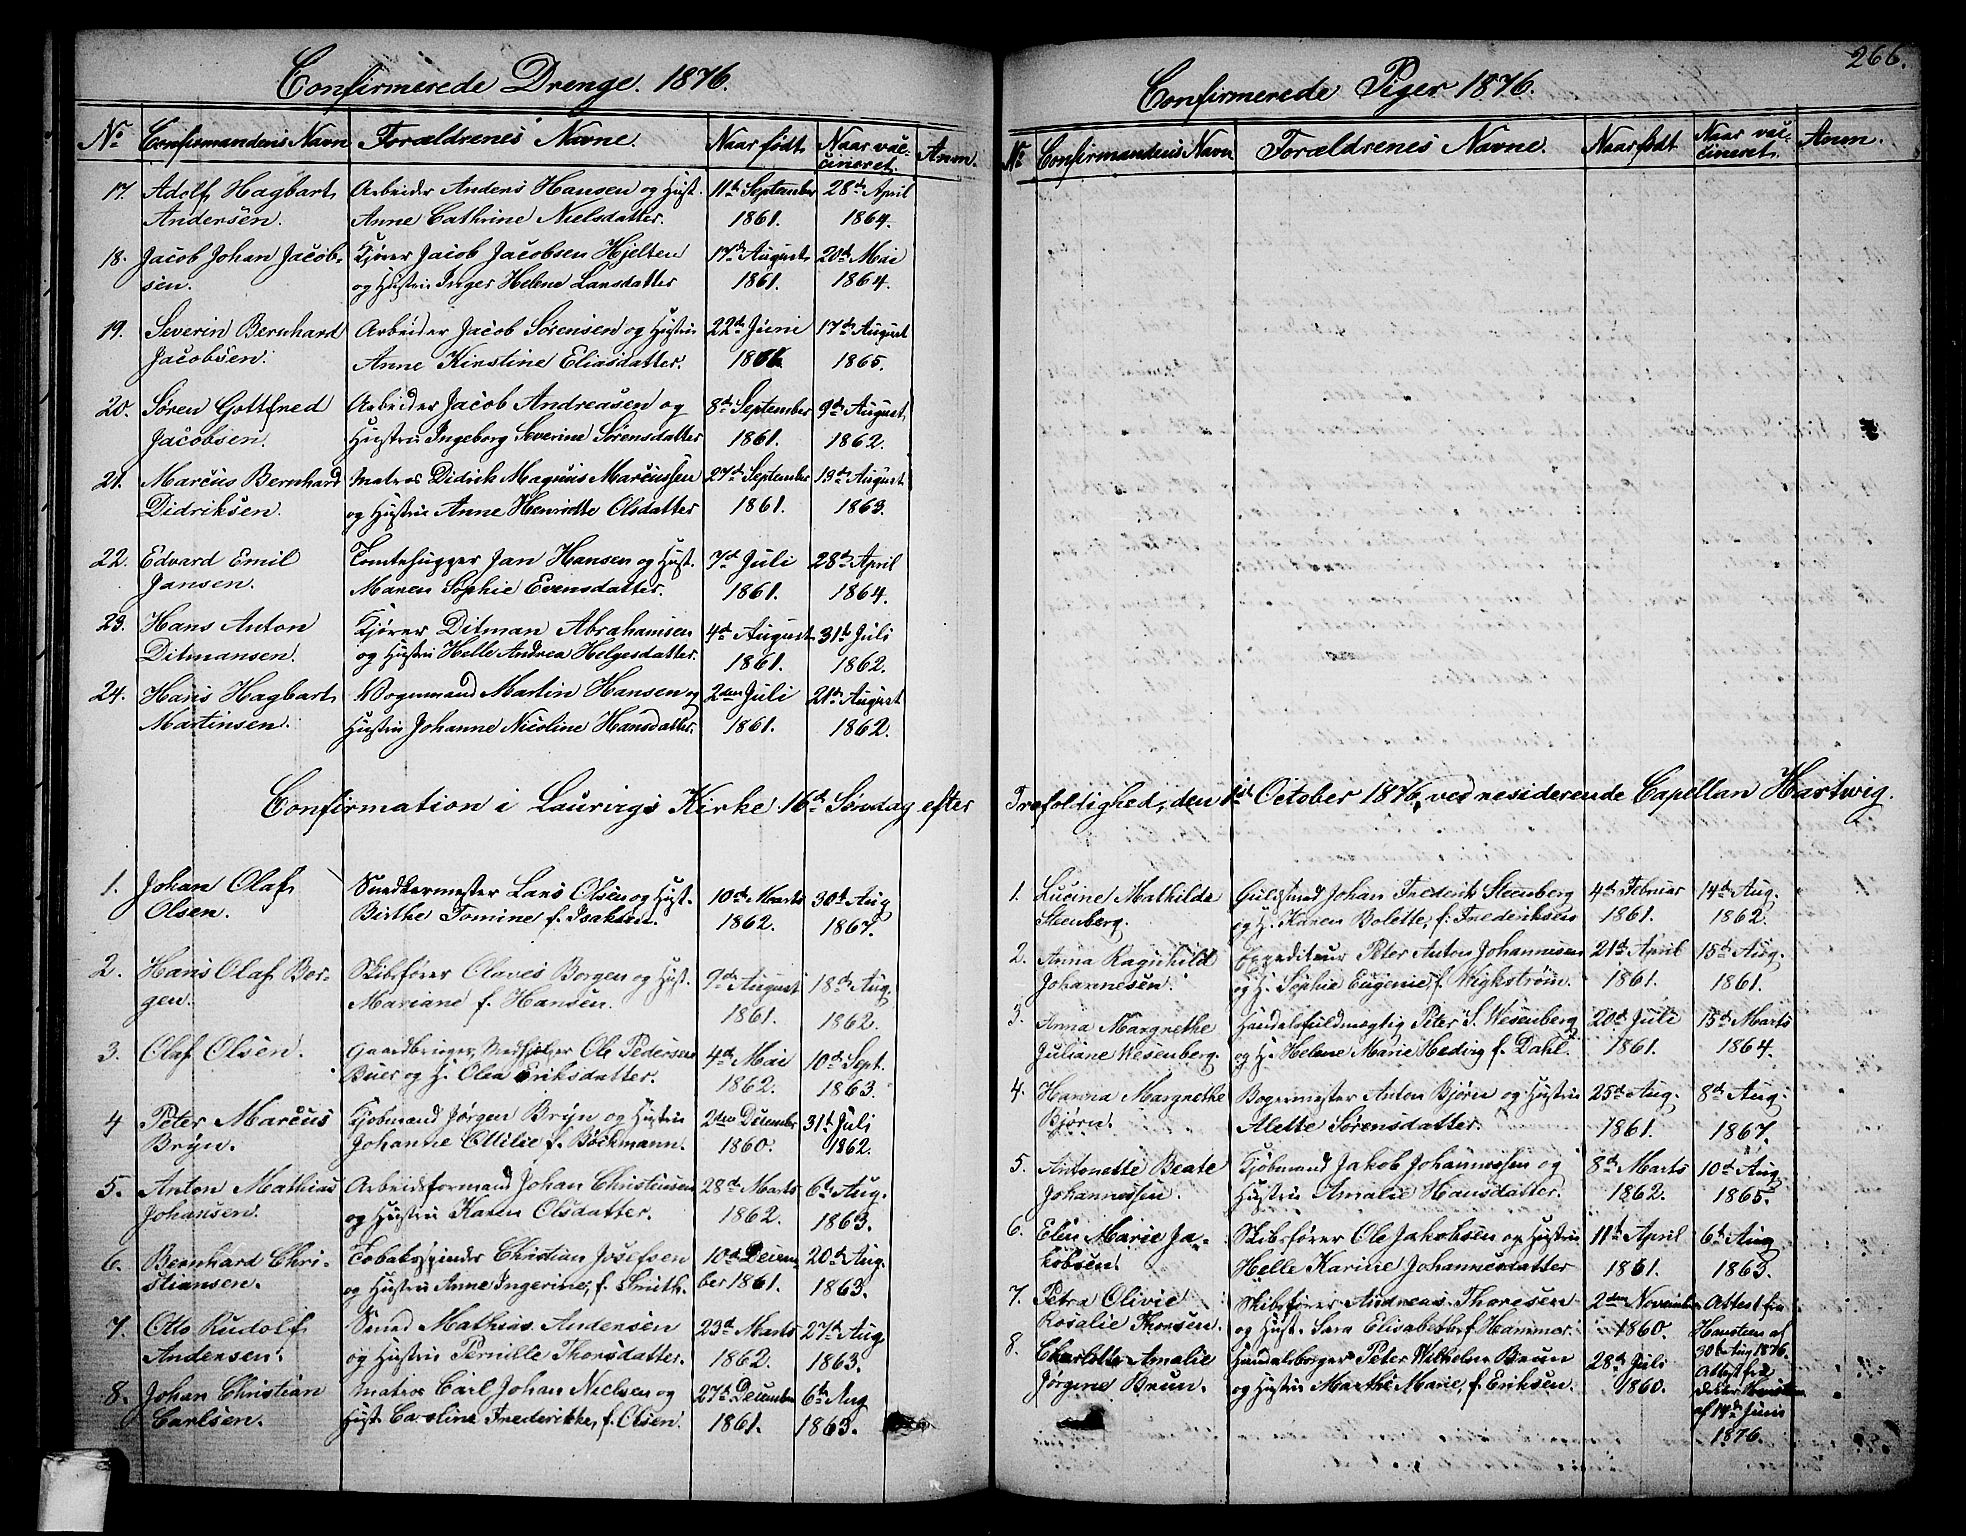 Confirmerede Drenge. 1876.
No Confirmandens Navn Forældrenes Navne. Naar født Naar vac-
cineret. Anm.
17. Adolf Hagbart Arbeider Anders Hansen og Hust. 11te September 28de April
Andersen. Anne Cathrine Nielsdatter. 1861. 1864.
18. Jacob Johan Jacob- Kjører Jacob Jacobsen Hjelten 17de August 20de Mai
sen. og Hustru Inger Helene Larsdatter 1861. 1864.
19. Severin Bernhard Arbeider Jacob Sørensen og Hustru 22de Juni 17de August
Jacobsen. Anne Kirstine Eliasdatter. 1865.
20. Søren Gottfred Arbeider Jacob Andreasen og 8de September 9de August
Jacobsen. Hustru Ingeborg Severine Sørensdatter 1861. 1862.
21. Marcus Bernhard Matros Didrik Magnus Marcussen 27de September 13de August
Didriksen. og Hustru Anne Henriette Olsdatter 1861. 1863.
22. Edvard Emil Tomtehugger Jan Hansen og Hust. 7de Juli 28de April
Jansen. Maren Sophie Evensdatter. 1861. 1864.
23. Hans Anton Kjører Ditman Abrahamsen 4de August 31te Juli
Ditmansen. og Hustru Helle Andrea Helgesdatter. 1861. 1862.
24. Hans Hagbart Vognmand Martin Hansen og 2den Juli 21de August
Martinsen. Hustru Johanne Nicoline Hansdatter. 1861. 1862.
Confirmation i Laurvigs Kirke 16de Søndag efter
1. Johan Olaf Snedkermester Lars Olsen og Hust. 10de Marts 30te Aug
Olsen. Birthe Tomine f. Isaksen. 1862. 1867.
2. Hans Olaf Bor- Skibsfører Olaves Borgen og Hust. 9de August 18de Aug.
gen. Mariane f. Hansen. 1861. 1862.
3. Olaf Olsen. Gaardbruger, Ole Pedersen 4de Mai 10de Sept.
Buer og H. Olea Eriksdatter. 1862. 1863.
4 Peter Marcus Kjøbmand Jørgen Bryn og Hustru 2den December 31te Juli
Bryn. Johanne Ottilie f. Bøckmann. 1860. 1862.
5. Anton Mathias Arbeidsformand Johan Christensen 28de Marts 6te Aug.
Johansen. og Hustru Karen Olsdatter. 1862. 1863.
6. Bernhard Chri- Tobakspinder Christian Josefsen 10de Decem 20de Aug.
stiansen. og Hustru Anne Ingerine, f. Smith. ber 1861. 1863.
7. Otto Rudolf Smed Mathias Andersen 23de Marts 27de Aug
Andersen. og Hustru Pernille Thorsdatter. 1862. 1863.
8. Johan Christian Matros Carl Johan Nielsen og 27de December 6te Aug
Carlsen. Hust. Caroline Frederikke, f. Olsen. 1861. 1863.
266.
Confirmerede Piger 1876.
No Confirmandens Navn Forældrenes Navne. Naar født Naar vac-
cineret. Anm.
Trefoldighed, den 1ste October 1876, ved residerende Capellan Hartwig.
1. Lucine Mathilde Guldsmed Johan Frederik Steenberg 4de Februar 14de Aug.
Steenberg. og H. Karen Bolette, f. Frederiksen 1861. 1862.
2. Anna Ragnhild Expediteur Peter Anton Johannesen 21de April 18de Aug.
Johannesen. og H. Sophie Eugenie, f. Wigkstrøm. 1861. 1861.
3. Anna Margrethe Handelsfuldmægtig Peter S. Wesenberg 20de Juli 15de Marts
Juliane Wesenberg. og H. Helene Marie Hedvig f. Dahl. 1861. 1864.
4. Hanna Margrethe Bogermester Anton Bjørn og Hustru 25de Aug. 8de Aug.
Bjørn. Alette Sørensdatter. 1861. 1867.
5. Antonette Beate Kjøbmand Jakob Johannessen og 8de Marts 10de Aug
Johannessen. Hustru Amalie Hansdatter. 1862. 1865.
6. Elen Marie Ja- Skibsfører Ole Jakobsen og Hustru 11te April 6te Aug
kobsen. Helle Karine Johannesdatter 1861. 1863.
7. Petra Olivie Skibsfører Andreas Thoresen 2den November Attest fra
Rosalie Thorsen. og Hust. Sara Elisabeth f. Hammer. 1860. Hansteen af
30te Aug 1876.
8. Charlotte Amalie Handelsborger Peter Wilhelm Brun 28de Juli Attest fra
Jørgine Brun. og Hustru Marthe Marie, f. Eriksen. 1860.
af 14de Juni
1876.